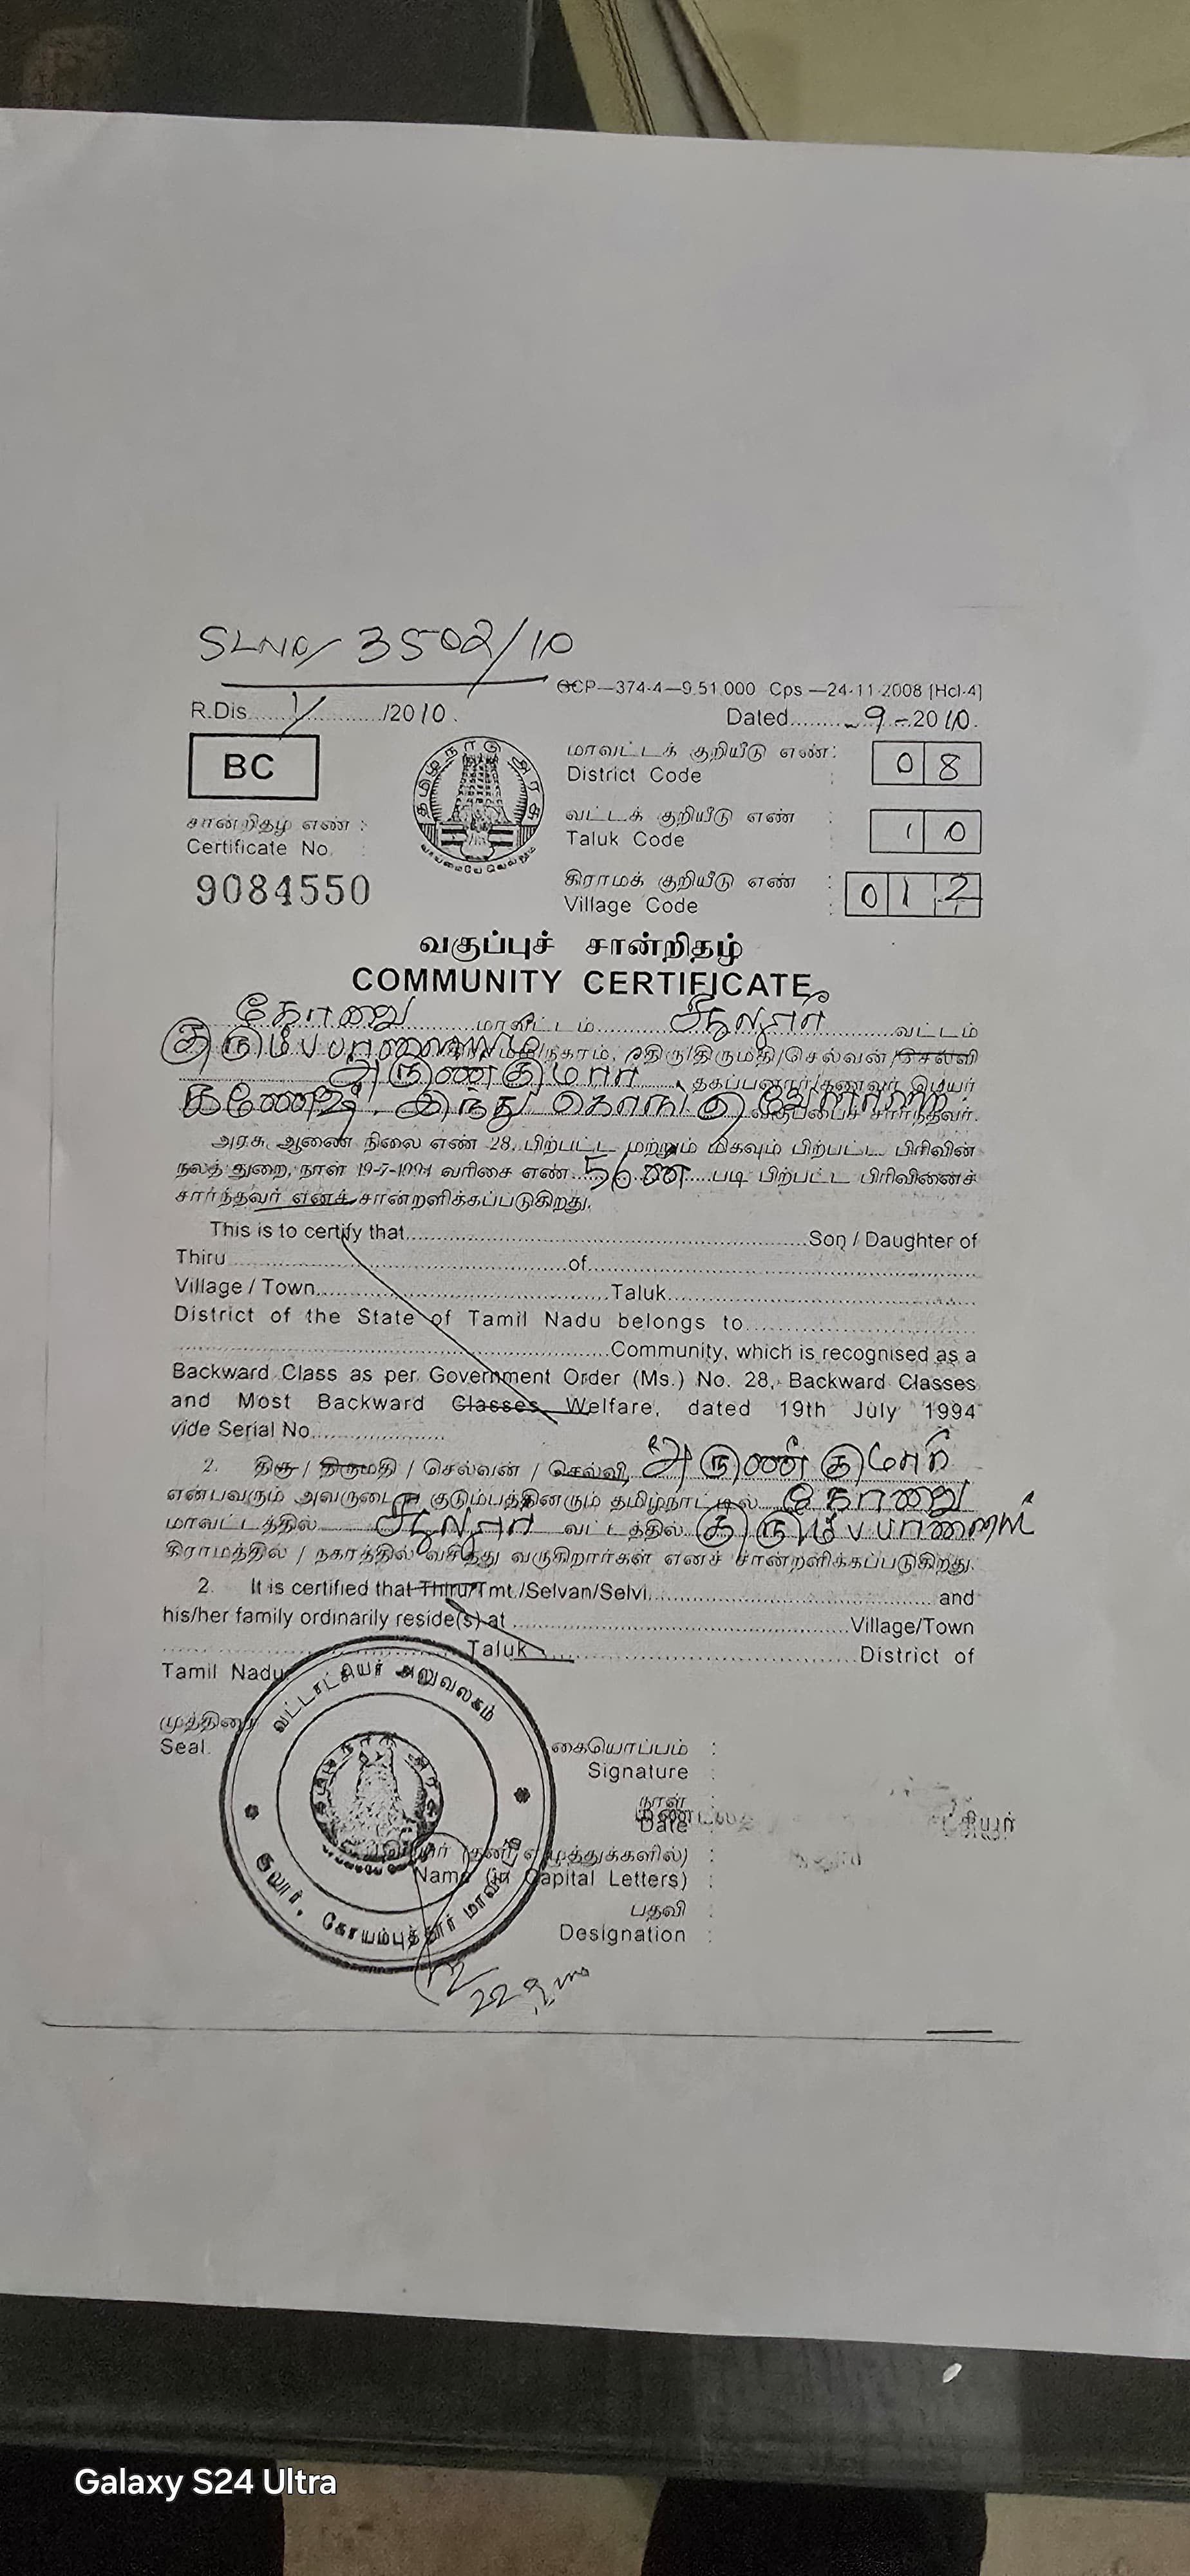 SLNO/ 3502/10
GCP—374-4—9.51.000 Cps —24-11-2008 [Hcl-4]
R.Dis....1/....../2010.
Dated.........-9-2010.
BC
தமிழ்நாடு அரசு
வாய்மையே வெல்லும்
மாவட்டக் குறியீடு எண் :
District Code : 08
வட்டக் குறியீடு எண் :
Taluk Code : 10
சான்றிதழ் எண் :
Certificate No. :
9084550
கிராமக் குறியீடு எண் :
Village Code : 012
வகுப்புச் சான்றிதழ்
COMMUNITY CERTIFICATE
கோவை மாவட்டம் சூலூர் வட்டம்
நகரம், திரு/திருமதி/செல்வன்/செல்வி
அருண்குமார் தகப்பனார்/கணவர் பெயர்
கணேஷ், இந்து கொங்கு வேளாளர் வகுப்பைச் சார்ந்தவர்.
அரசு ஆணை நிலை எண் 28, பிற்பட்ட மற்றும் மிகவும் பிற்பட்ட பிரிவின்
நலத் துறை, நாள் 19-7-1994 வரிசை எண் 56ன் படி பிற்பட்ட பிரிவினைச்
சார்ந்தவர் எனச் சான்றளிக்கப்படுகிறது.
This is to certify that..............................Son / Daughter of
Thiru..............................of..............................
Village / Town..............................Taluk..............................
District of the State of Tamil Nadu belongs to....................
..............................Community, which is recognised as a
Backward Class as per Government Order (Ms.) No. 28, Backward Classes
and Most Backward Classes Welfare, dated 19th July 1994
vide Serial No....................
2. திரு / திருமதி / செல்வன் / செல்வி, அருண்குமார்
என்பவரும் அவருடைய குடும்பத்தினரும் தமிழ்நாட்டில் கோவை
மாவட்டத்தில் சூலூர் வட்டத்தில்
கிராமத்தில் / நகரத்தில் வசித்து வருகிறார்கள் எனச் சான்றளிக்கப்படுகிறது.
2. It is certified that Thiru/Tmt./Selvan/Selvi..............................and
his/her family ordinarily reside(s) at ..............................Village/Town
..............................Taluk..............................District of
Tamil Nadu
வட்டாட்சியர் அலுவலகம்
தமிழ்நாடு அரசு
சூலூர், கோயம்புத்தூர் மாவட்டம்
முத்திரை
Seal.
கையொப்பம் :
Signature :
நாள் :
Date :
(தனி எழுத்துக்களில்) :
Name (in Capital Letters) :
பதவி :
Designation :
Galaxy S24 Ultra